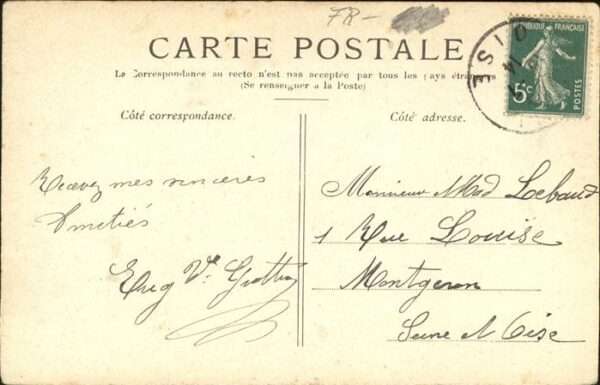 FR-
CARTE POSTALE
La Correspondance au recto n'est pas acceptée par tous les pays étrangers
(Se renseigner à la Poste)
Côté correspondance.
Côté adresse.
RÉPUBLIQUE FRANÇAISE
5c
POSTES
OISE
14
Recevez mes sincères
Ametiés
Eug Ve
Monsieur Mad Lebaud
1 Rue Louise
Montgeron
Seine et Oise